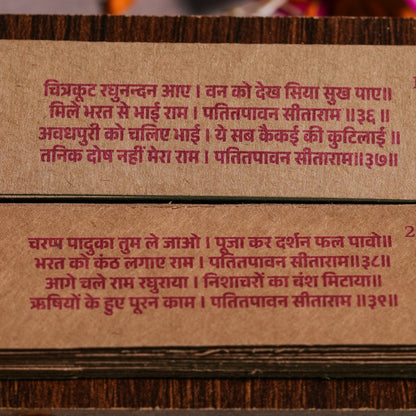 चित्रकूट रघुनन्दन आए । वन को देख सिया सुख पाए॥
मिले भरत से भाई राम । पतितपावन सीताराम ॥३६ ॥
अवधपुरी को चलिए भाई । ये सब कैकई की कुटिलाई ॥
तनिक दोष नहीं मेरा राम । पतितपावन सीताराम॥३७॥
चरण पादुका तुम ले जाओ । पूजा कर दर्शन फल पावो॥
भरत को कंठ लगाए राम । पतितपावन सीताराम॥३८॥
आगे चले राम रघुराया । निशाचरों का बंश मिटाया॥
ऋषियों के हुए पूरन काम । पतितपावन सीताराम ॥३९॥